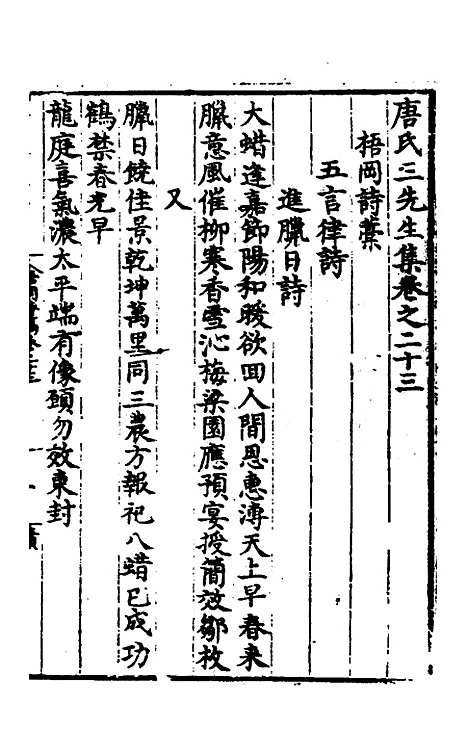 唐氏三先生集卷之二十三
梧岡詩藁
五言律詩
進臘日詩
大蜡逢嘉節陽和暖欲回人間恩惠溥天上早春来
臘意風催柳寒香雪沁梅梁園應預宴授簡效鄒枚
又
臘日饒佳景乾坤萬里同三農方報祀八蜡已成功
鶴禁春光早
龍庭喜氣濃太平端有像頚勿效東封